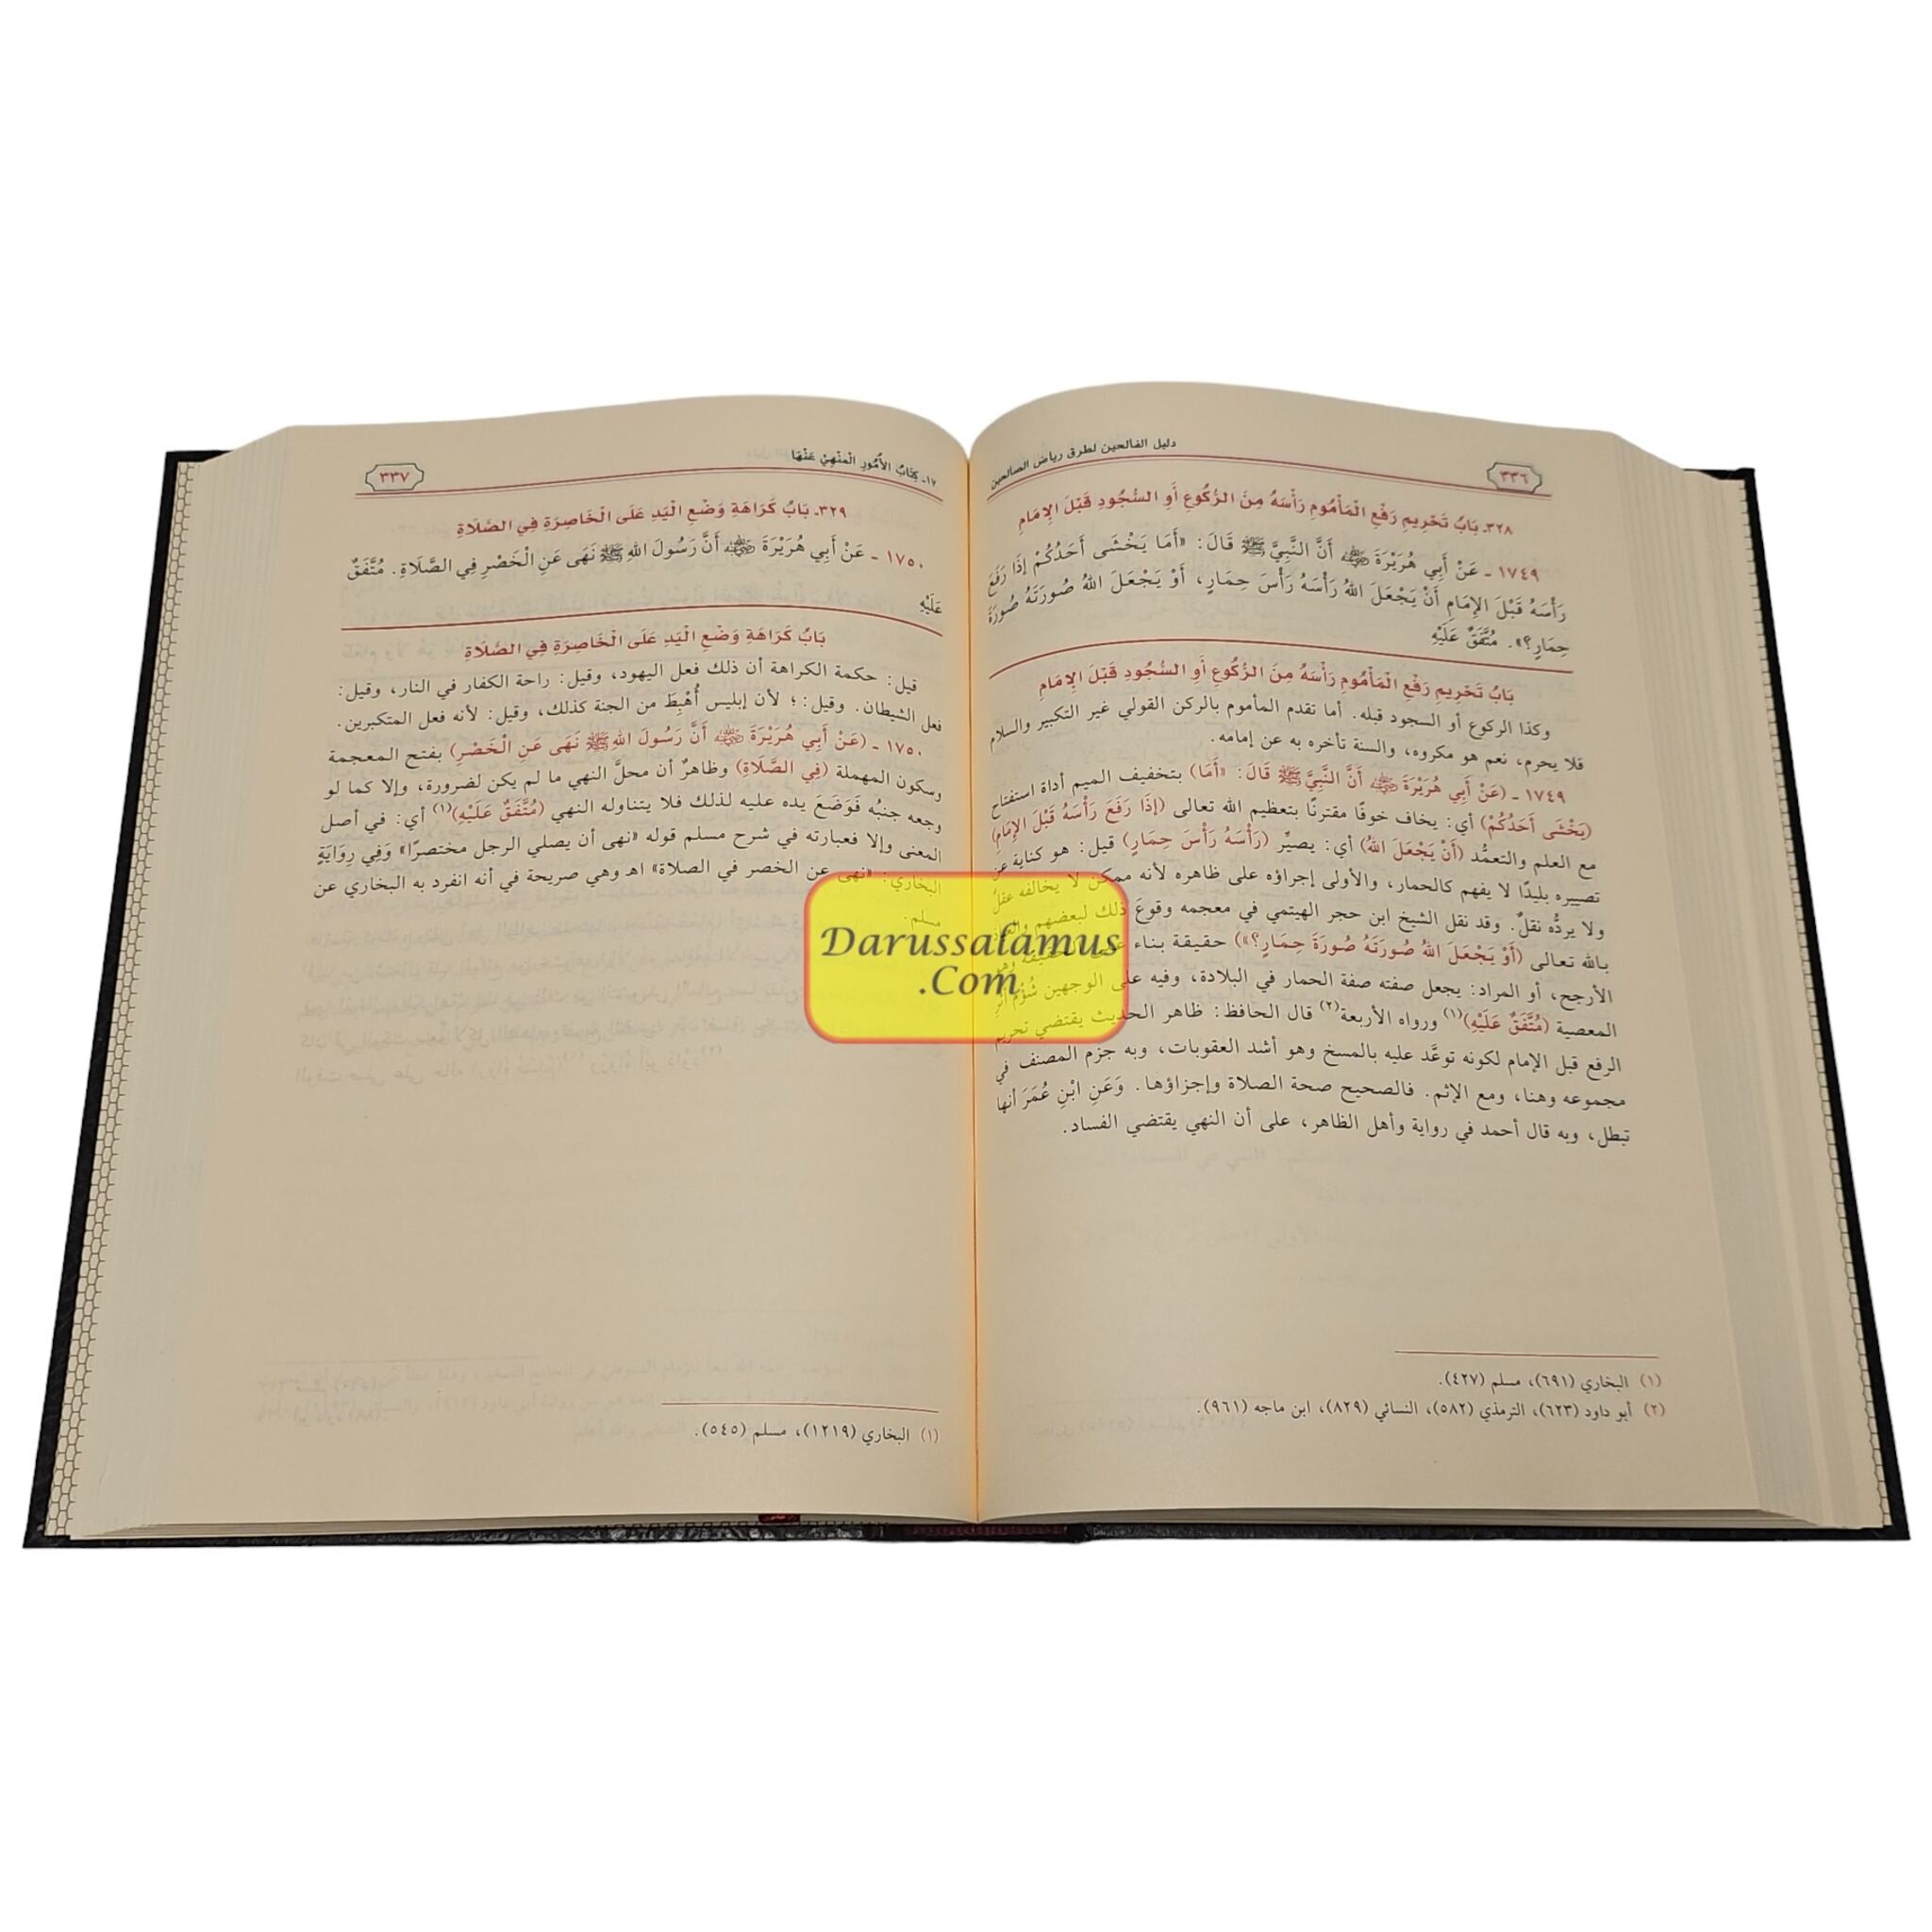 دليل الفالحين لطرق رياض الصالحين
٣٣٦
٣٢٨ـ بَابُ تَحْرِيمِ رَفْعِ الْمَأْمُومِ رَأْسَهُ مِنَ الرُّكُوعِ أَوِ السُّجُودِ قَبْلَ الإِمَامِ
١٧٤٩ ـ عَنْ أَبِي هُرَيْرَةَ ﵁ أَنَّ النَّبِيَّ ﷺ قَالَ: «أَمَا يَخْشَى أَحَدُكُمْ إِذَا رَفَعَ
رَأْسَهُ قَبْلَ الإِمَامِ أَنْ يَجْعَلَ اللهُ رَأْسَهُ رَأْسَ حِمَارٍ، أَوْ يَجْعَلَ اللهُ صُورَتَهُ صُورَةَ
حِمَارٍ؟». مُتَّفَقٌ عَلَيْهِ
بَابُ تَحْرِيمِ رَفْعِ الْمَأْمُومِ رَأْسَهُ مِنَ الرُّكُوعِ أَوِ السُّجُودِ قَبْلَ الإِمَامِ
وكذا الركوع أو السجود قبله. أما تقدم المأموم بالركن القولي غير التكبير والسلام
فلا يحرم، نعم هو مكروه، والسنة تأخره به عن إمامه.
١٧٤٩ ـ (عَنْ أَبِي هُرَيْرَةَ ﵁ أَنَّ النَّبِيَّ ﷺ قَالَ: «أَمَا) بتخفيف الميم أداة استفتاح
(يَخْشَى أَحَدُكُمْ) أي: يخاف خوفًا مقترنًا بتعظيم الله تعالى (إِذَا رَفَعَ رَأْسَهُ قَبْلَ الإِمَامِ)
مع العلم والتعمُّد (أَنْ يَجْعَلَ اللهُ) أي: يصيِّر (رَأْسَهُ رَأْسَ حِمَارٍ) قيل: هو كناية عن
تصييره بليدًا لا يفهم كالحمار، والأولى إجراؤه على ظاهره لأنه ممكن لا يخالفه عقلٌ
ولا يردُّه نقلٌ. وقد نقل الشيخ ابن حجر الهيتمي في معجمه وقوعَ ذلك لبعضهم والعياذ
بالله تعالى (أَوْ يَجْعَلَ اللهُ صُورَتَهُ صُورَةَ حِمَارٍ؟») حقيقة بناء على الحقيقة وهو
الأرجح، أو المراد: يجعل صفته صفة الحمار في البلادة، وفيه على الوجهين شُؤْمُ أثر
المعصية (مُتَّفَقٌ عَلَيْهِ)(١) ورواه الأربعة(٢) قال الحافظ: ظاهر الحديث يقتضي تحريم
الرفع قبل الإمام لكونه توعَّد عليه بالمسخ وهو أشد العقوبات، وبه جزم المصنف في
مجموعه وهنا، ومع الإثم. فالصحيح صحة الصلاة وإجزاؤها. وَعَنِ ابْنِ عُمَرَ أنها
تبطل، وبه قال أحمد في رواية وأهل الظاهر، على أن النهي يقتضي الفساد.
(١) البخاري (٦٩١)، مسلم (٤٢٧).
(٢) أبو داود (٦٢٣)، الترمذي (٥٨٢)، النسائي (٨٢٩)، ابن ماجه (٩٦١).
١٧ـ كِتَابُ الأُمُورِ الْمَنْهِيِّ عَنْهَا
٣٣٧
٣٢٩ـ بَابُ كَرَاهَةِ وَضْعِ الْيَدِ عَلَى الْخَاصِرَةِ فِي الصَّلَاةِ
١٧٥٠ ـ عَنْ أَبِي هُرَيْرَةَ ﵁ أَنَّ رَسُولَ اللهِ ﷺ نَهَى عَنِ الْخَصْرِ فِي الصَّلَاةِ. مُتَّفَقٌ
عَلَيْهِ
بَابُ كَرَاهَةِ وَضْعِ الْيَدِ عَلَى الْخَاصِرَةِ فِي الصَّلَاةِ
قيل: حكمة الكراهة أن ذلك فعل اليهود، وقيل: راحة الكفار في النار، وقيل:
فعل الشيطان. وقيل:؛ لأن إبليس أُهْبِطَ من الجنة كذلك، وقيل: لأنه فعل المتكبرين.
١٧٥٠ ـ (عَنْ أَبِي هُرَيْرَةَ ﵁ أَنَّ رَسُولَ اللهِ ﷺ نَهَى عَنِ الْخَصْرِ) بفتح المعجمة
وسكون المهملة (فِي الصَّلَاةِ) وظاهرٌ أن محلَّ النهي ما لم يكن لضرورة، وإلا كما لو
وجعه جنبُه فَوَضَعَ يده عليه لذلك فلا يتناوله النهي (مُتَّفَقٌ عَلَيْهِ)(١) أي: في أصل
المعنى وإلا فعبارته في شرح مسلم قوله «نهى أن يصلي الرجل مختصرًا» وَفِي رِوَايَةِ
البخاري: «نهى عن الخصر في الصلاة» اهـ وهي صريحة في أنه انفرد به البخاري عن
مسلم.
(١) البخاري (١٢١٩)، مسلم (٥٤٥).
Darussalamus
.Com